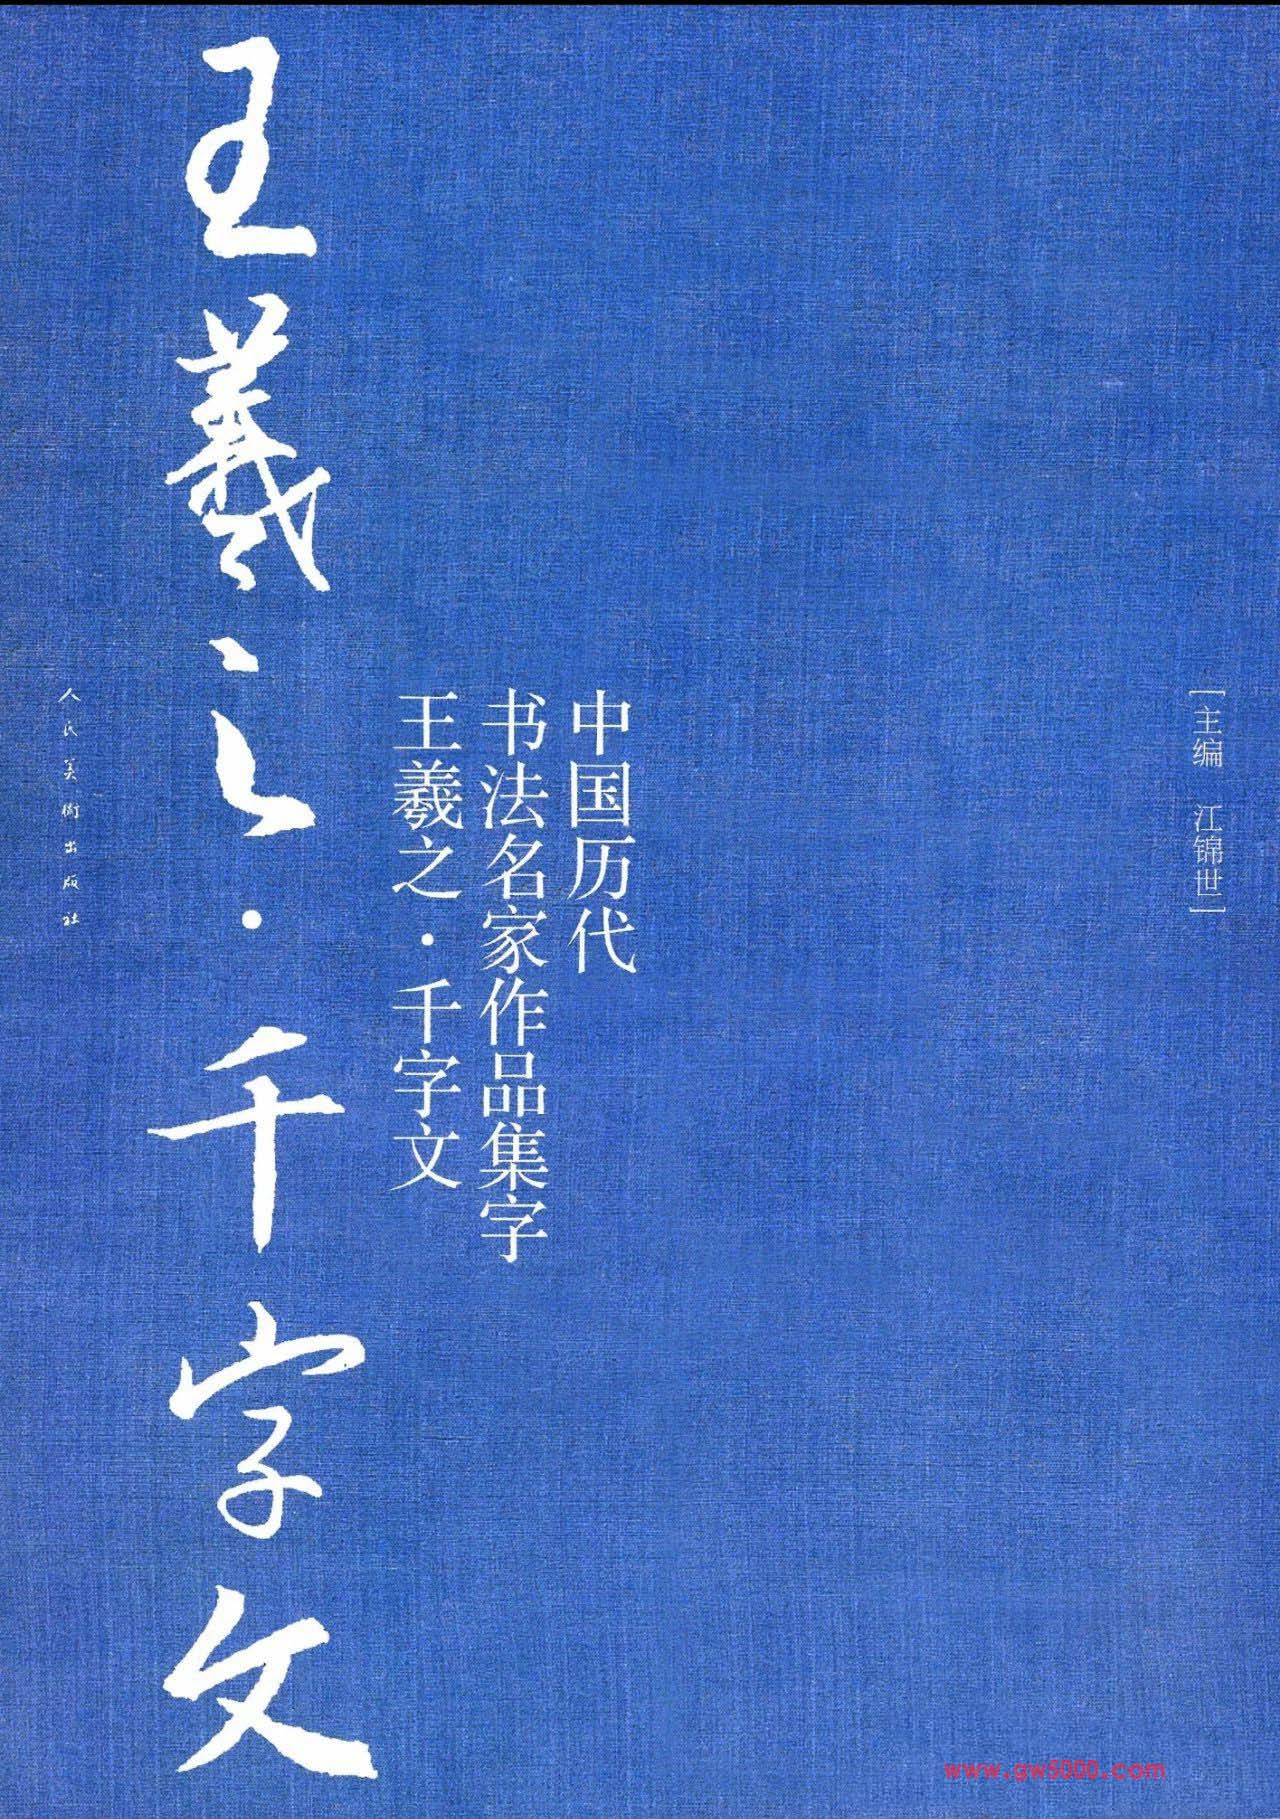 [主编 江锦世]
中国历代
书法名家作品集字
王羲之·千字文
王羲之·千字文
人民美術出版社
www.gw5000.com